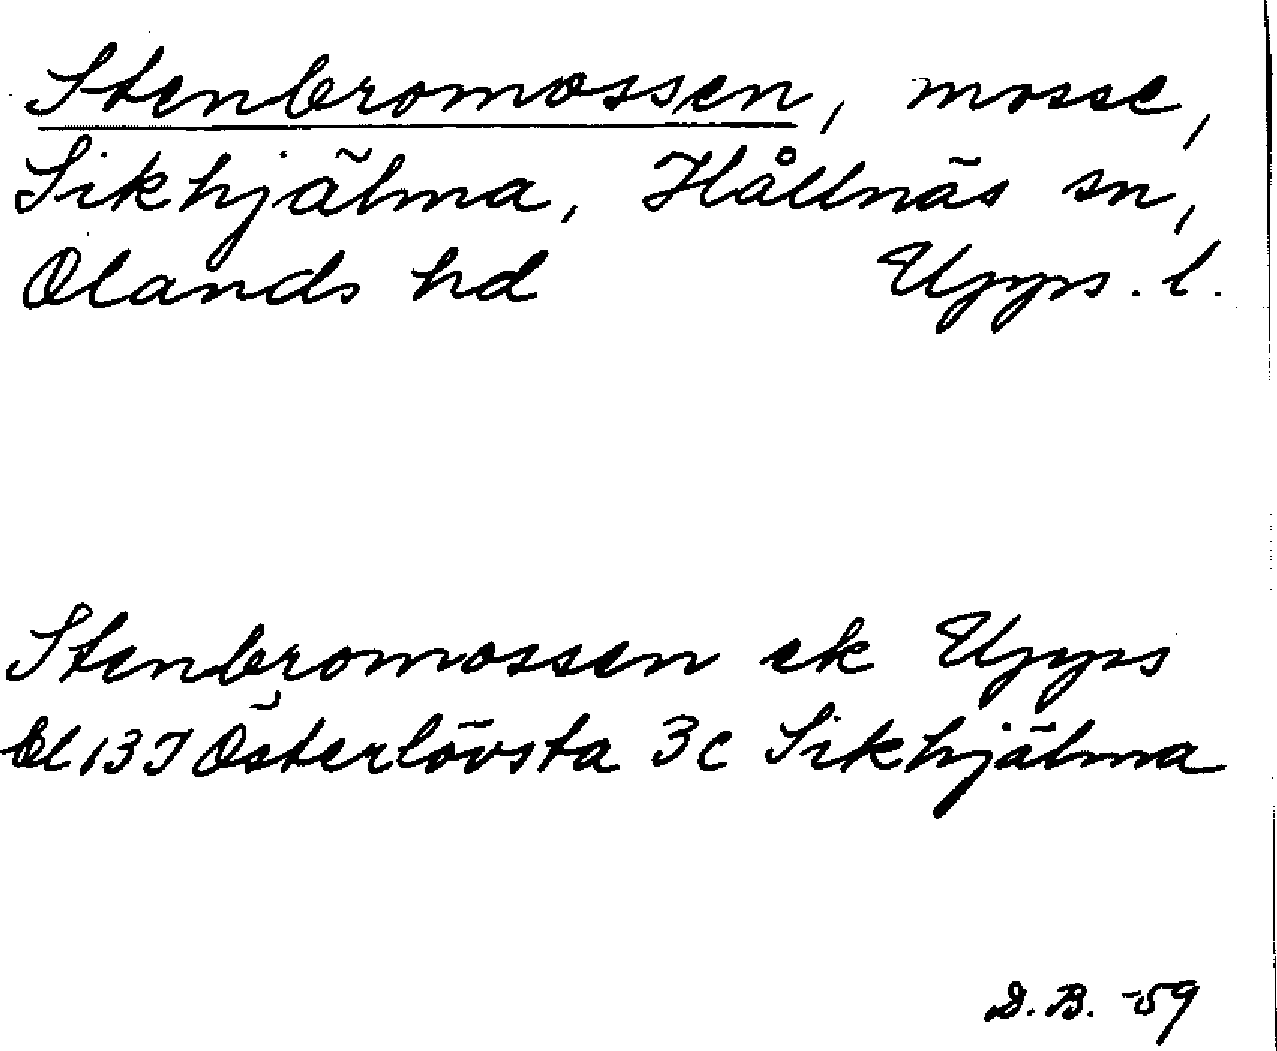 Stenbromossen, mosse,
Sikhjälma, Hållnäs sn,
Olands hd Upps. l.
Stenbromossen ek Upps
Bl 13 I Österlövsta 3c Sikhjälma
D.B. -59